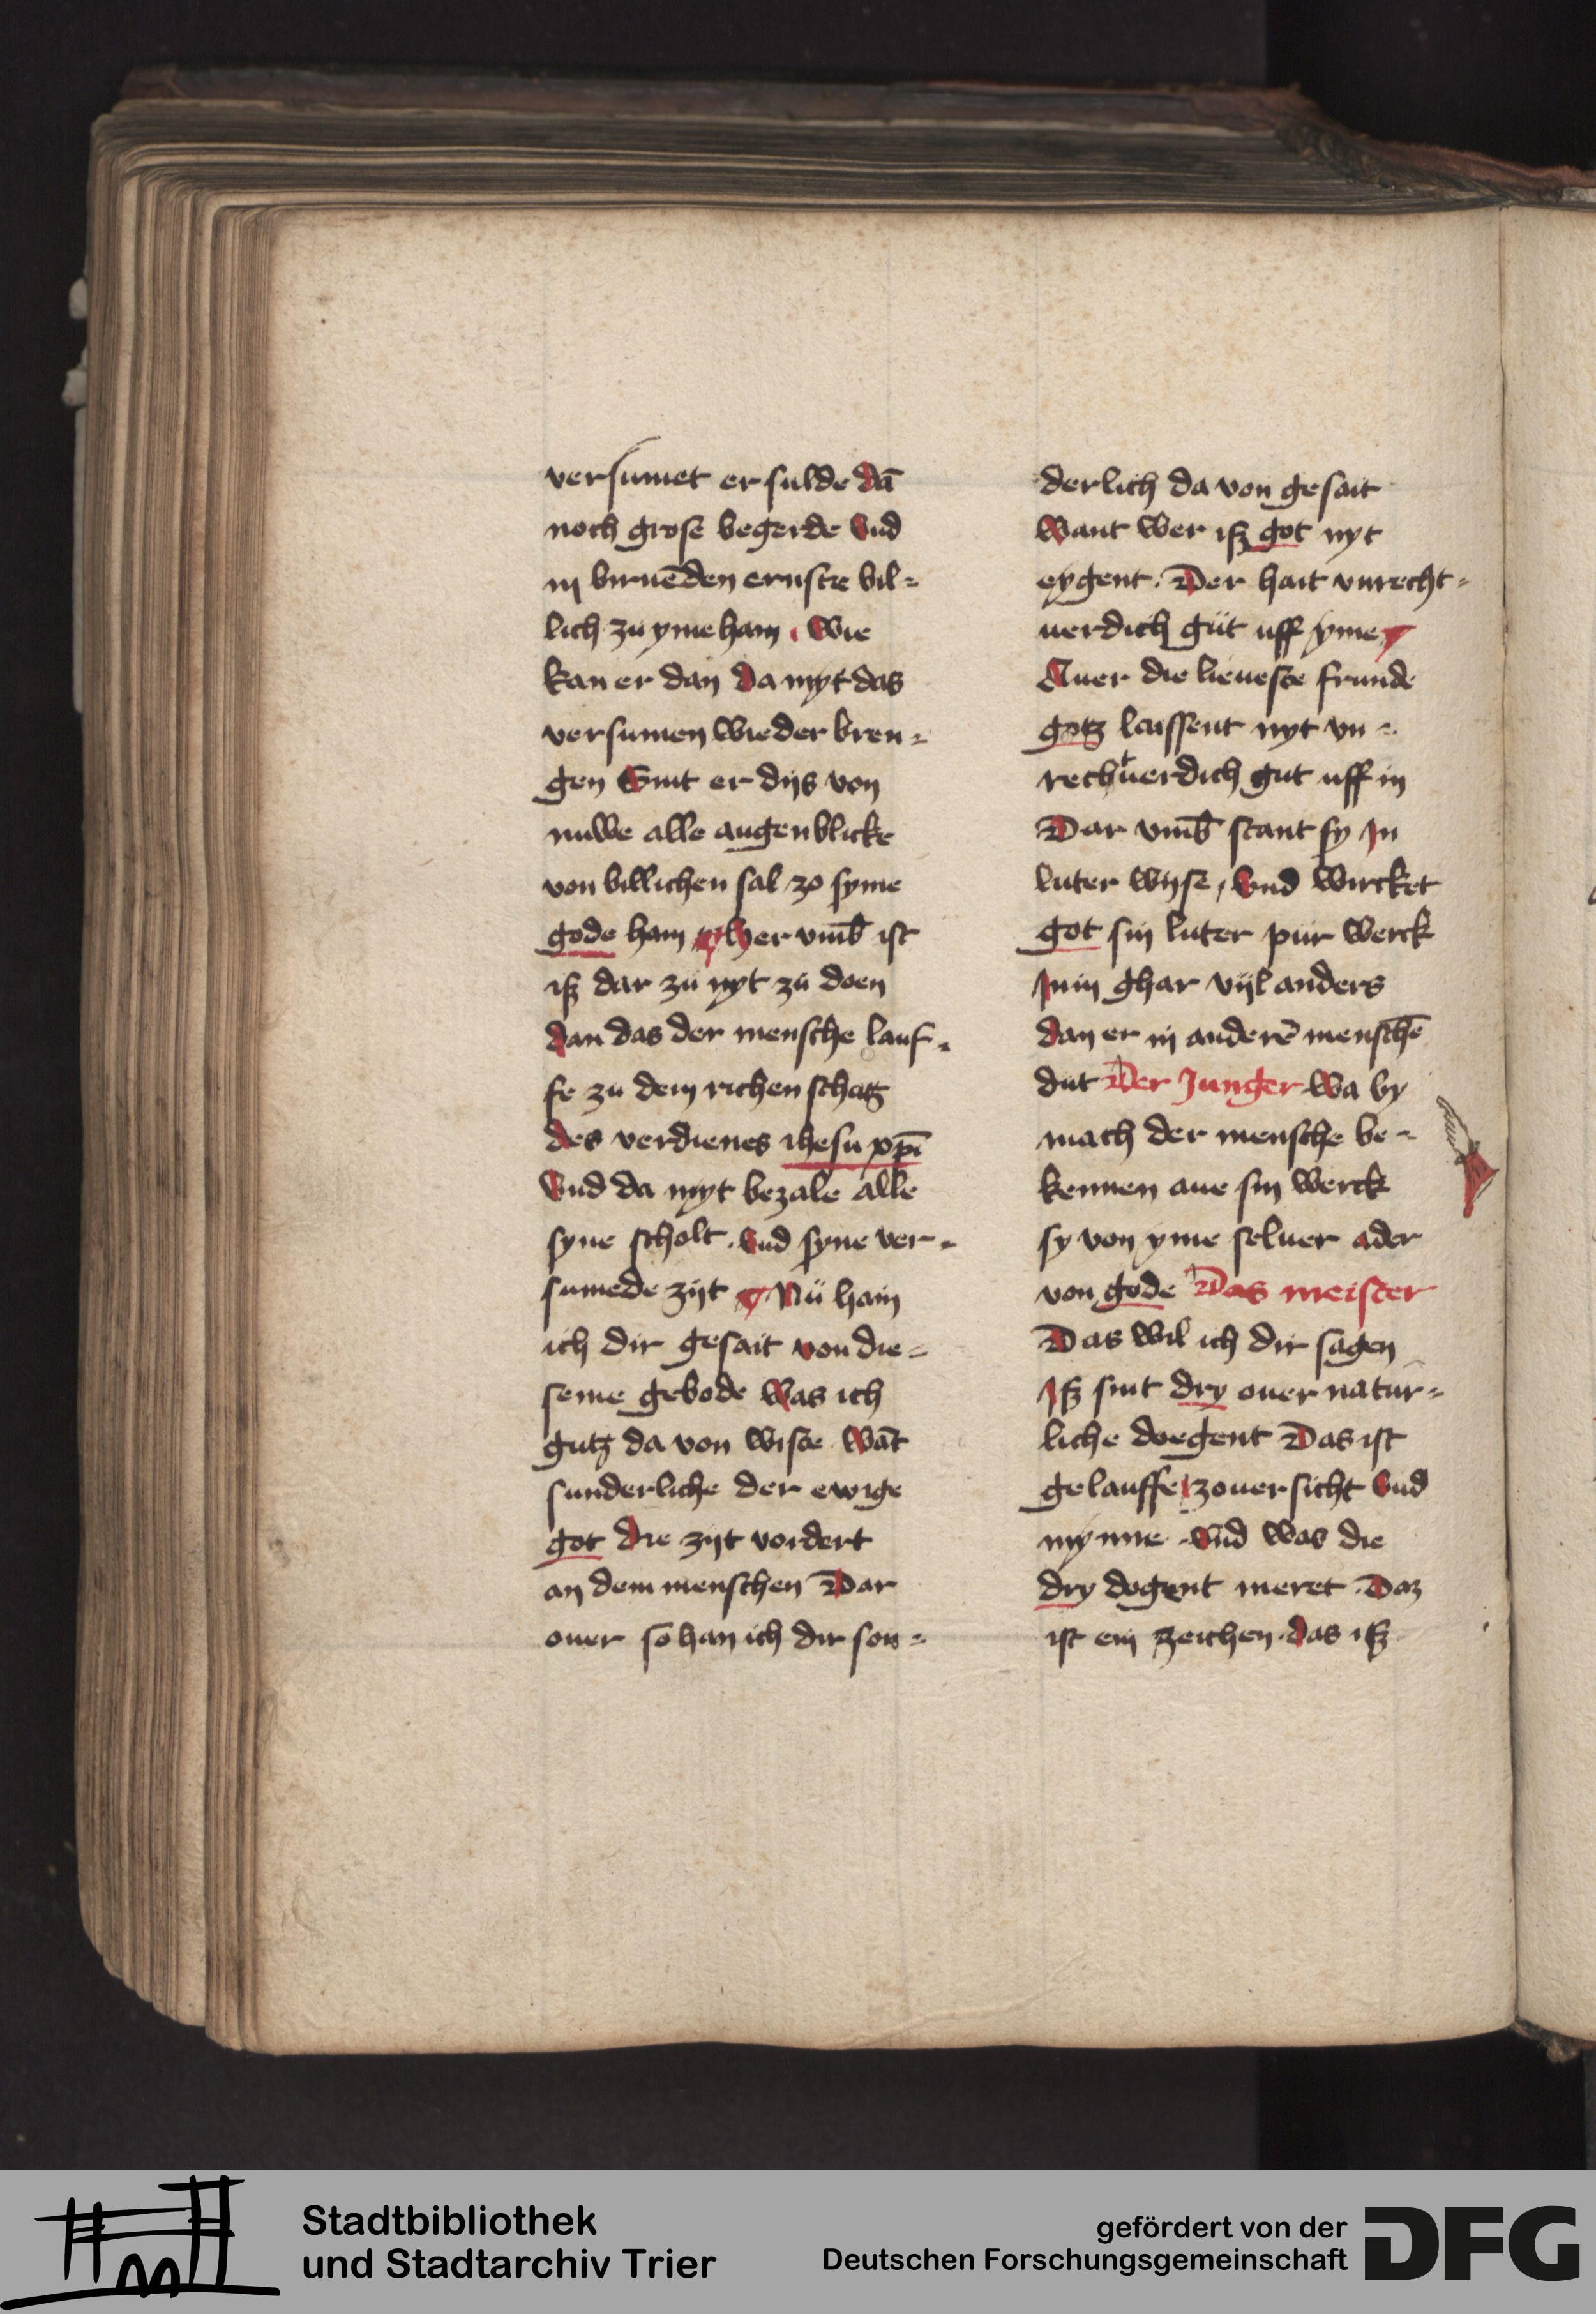 versumet er sulde dā
noch grose begerde vnd
in biruēden ernste bil-
lich zu yme ham. Wie
kan er dan da myt das
versumen wieder bren-
gen Sint er dijs von
nuwe alle augenblicke
von billichen sal zo syme
gode ham her vmb ist
iß dar zů nyt zů doen
dan das der mensche lauf-
fe zu dem richen schatz
des verdienes ihesu xpī
vnd da myt bezale alle
syne scholt. vnd syne ver-
sumede zijt Nů hain
ich dir gesait von die-
seme gebode Was ich
gutz da von wiste Wāt
sunderliche der ewige
got die zijt vordert
an dem menschen Dar
ouer so han ich dir son-
derlich da von gesait
Want wer iß got nyt
eygent. Der hait vnrecht-
uerdich gůt uff yme
Auer die lieueste frunde
gotz laissent nyt vn-
rechtuerdich gut uff in
Dar vmb stant sy In
luter wijse, vnd wircket
got sin luter pur werck
Inin ghar vijl anders
dan er in anderē menschē
dut Der Junger Wa by
mach der mensche be-
kennen aue sin werck
sy von yme seluer ader
von gode Das meister
Das wil ich dir sagen
Iß sint dry ouer natur-
liche doegent Das ist
gelauffe zouersicht vnd
mynne. vnd was die
dry dogent meret. Daz
ist ein zeichen. das iß
Stadtbibliothek
und Stadtarchiv Trier
gefördert von der
Deutschen Forschungsgemeinschaft
DFG